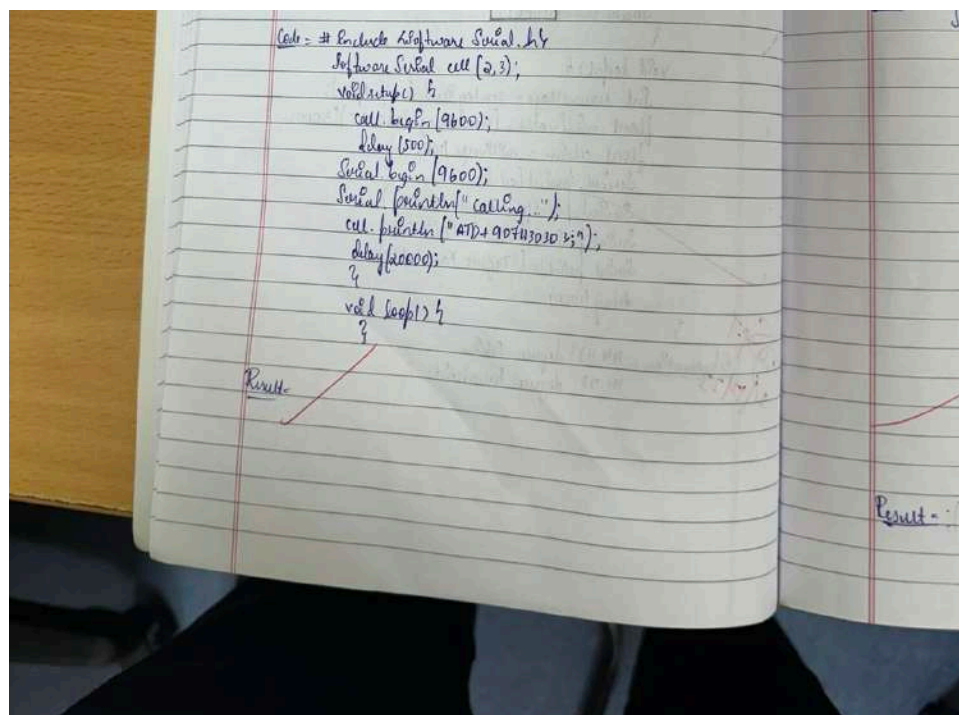 Code:- #include <Software Serial.h>
Software Serial cell (2,3);
void setup() {
cell.begin (9600);
delay (500);
Serial.begin (9600);
Serial.println("calling...");
cell.println ("ATD+
delay(20000);
}
void loop() {
}
Result-
Result-: